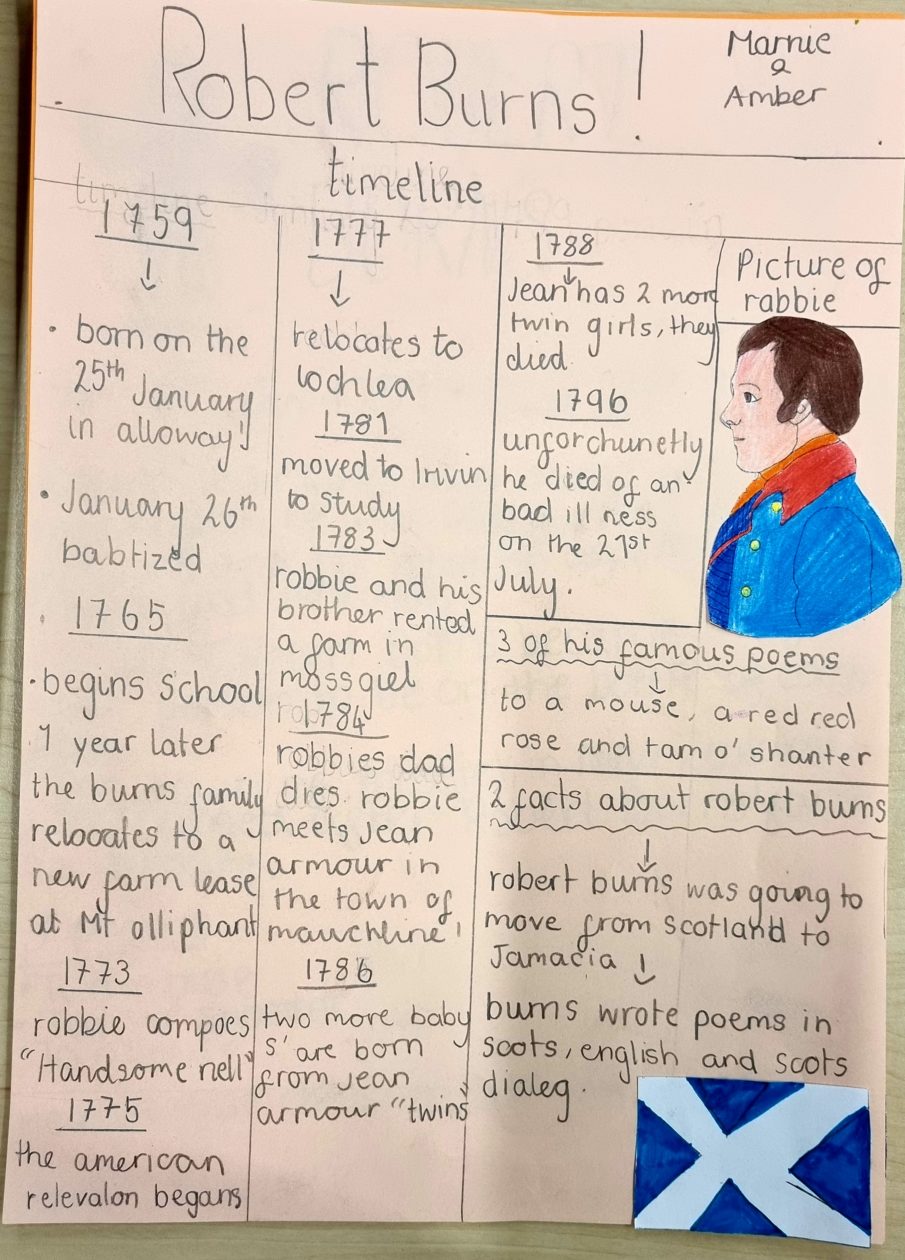 Robert Burns!
Marnie
&
Amber
timeline
1759
↓
• born on the
25th January
in alloway!
• January 26th
babtized
• 1765
• begins school
1 year later
the burns family
relocates to a
new farm lease
at Mt olliphant
1773
robbie compoes
"Handsome nell"
1775
the american
relevalon begans
1777
↓
relocates to
lochlea
1781
moved to Irivin
to study
1783
robbie and his
brother rented
a farm in
mossgiel
1784
robbies dad
dies. robbie
meets Jean
armour in
the town of
mauchline!
1786
two more baby
s' are born
from Jean
armour "twins
1788
↓
Jean has 2 more
twin girls, they
died.
1796
unforchunetly
he died of an
bad ill ness
on the 21st
July.
Picture of
rabbie
3 of his famous poems
↓
to a mouse, a red red
rose and tam o' shanter
2 facts about robert burns
↓
robert burns was going to
move from scotland to
Jamacia ↓
burns wrote poems in
scots, english and scots
dialeg.